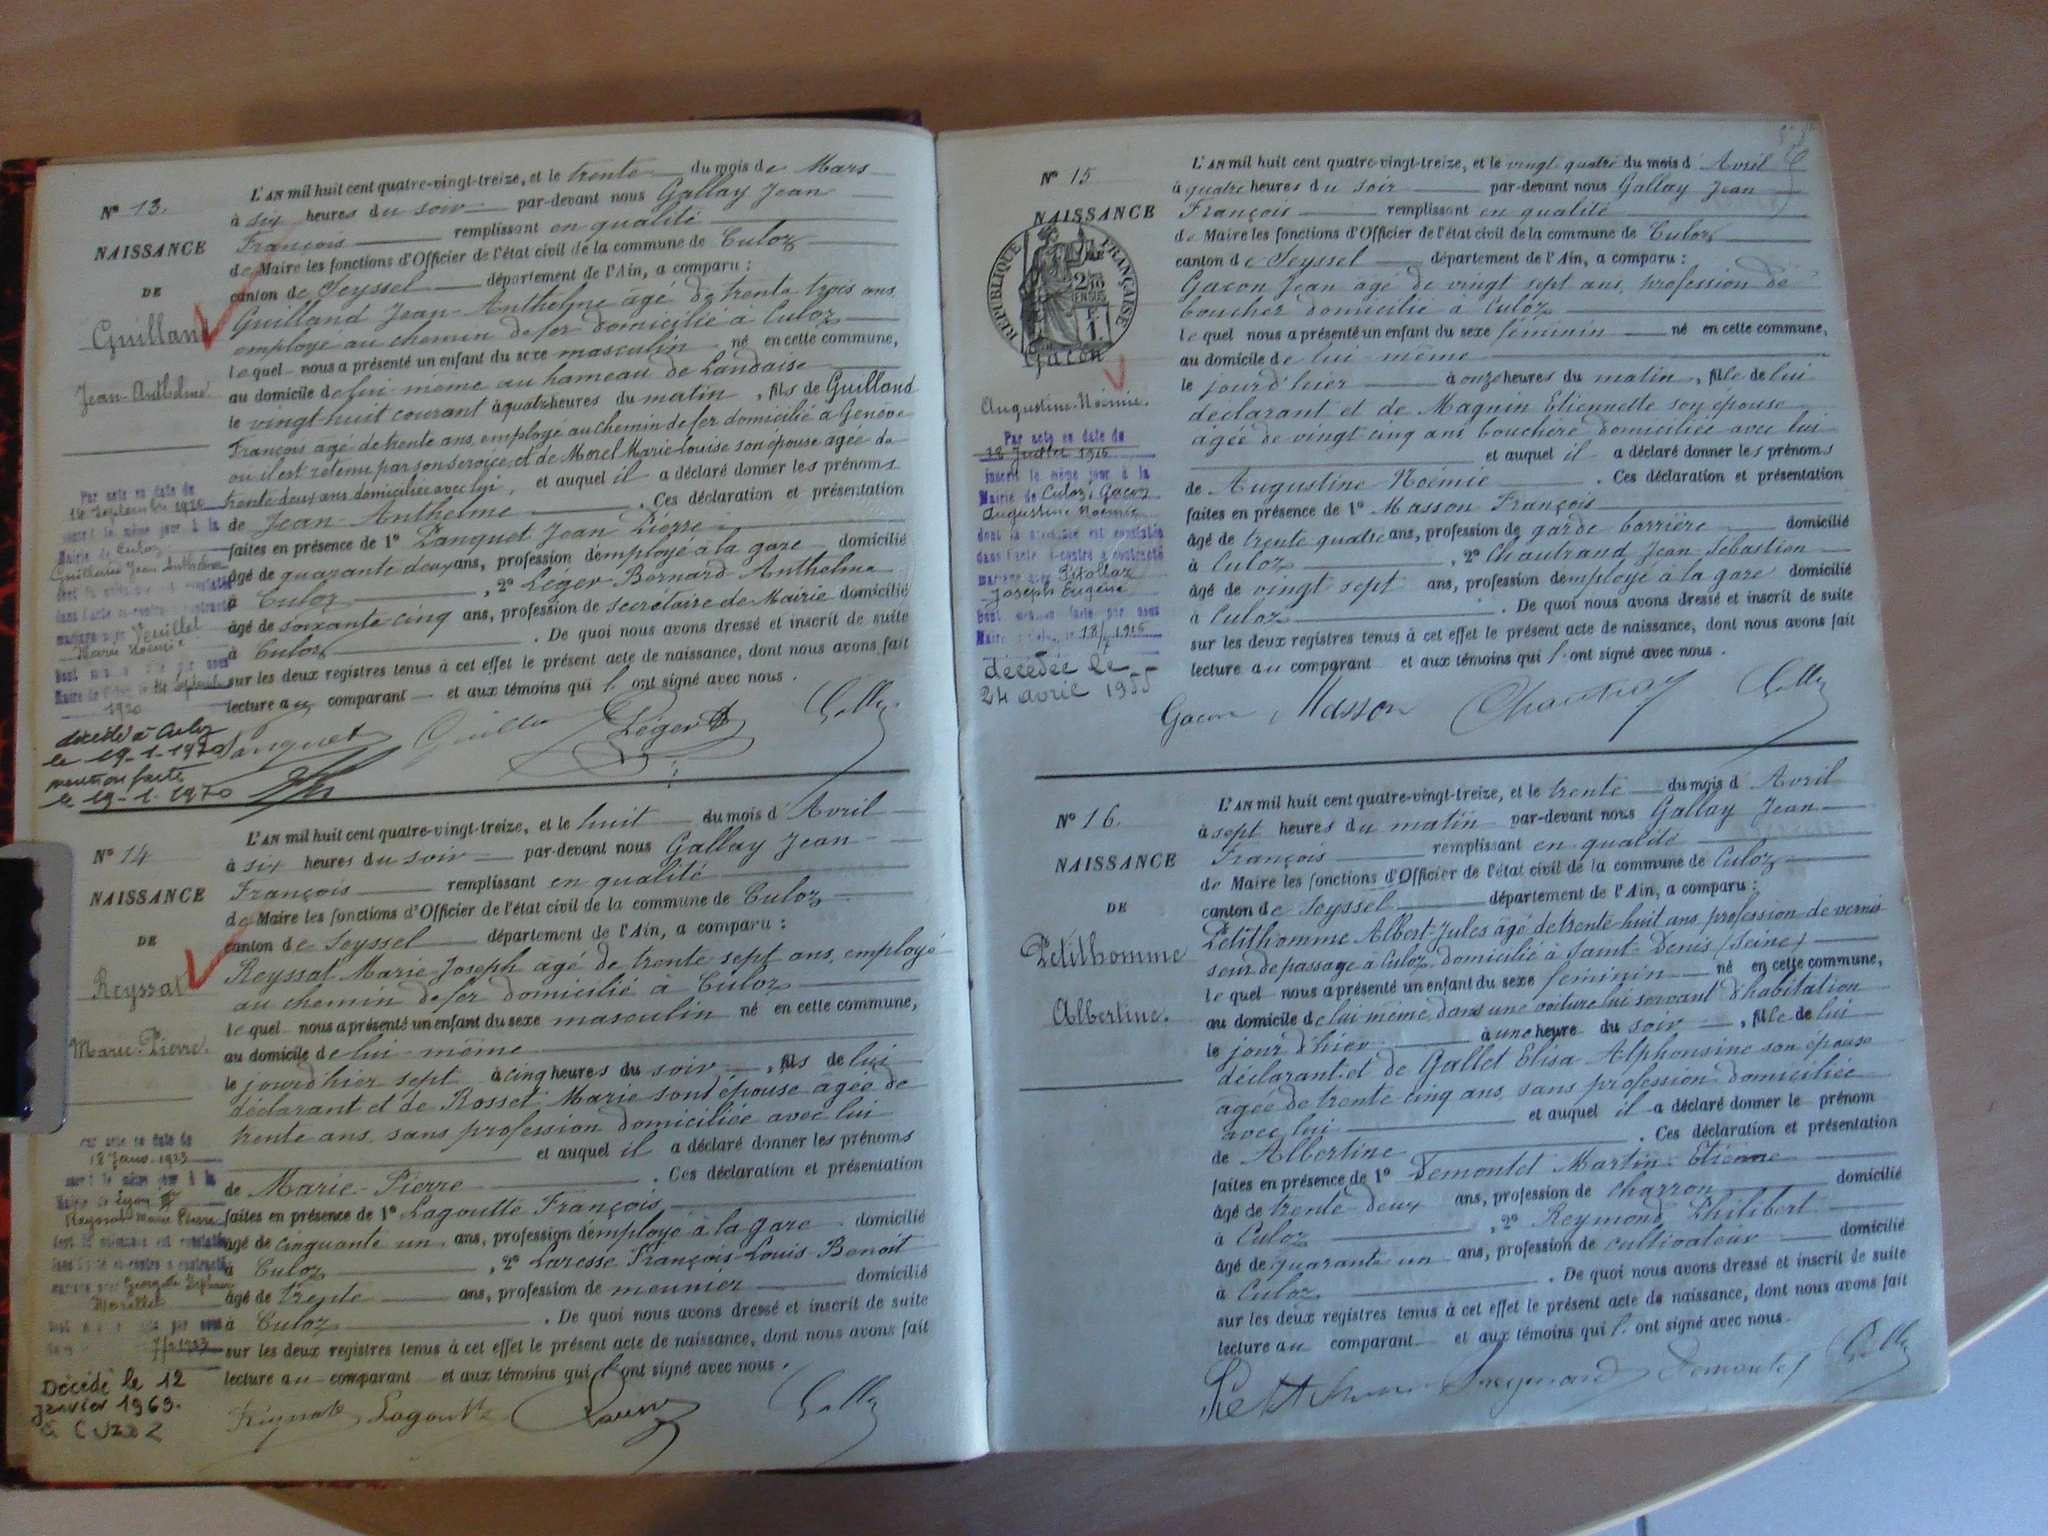 N° 13.
NAISSANCE
DE
Guilland
Jean-Anthelme
L'AN mil huit cent quatre-vingt-treize, et le trente du mois de Mars
à six heures du soir par-devant nous Gallay Jean
François remplissant en qualité
de Maire les fonctions d'Officier de l'état civil de la commune de Culoz
canton de Seyssel département de l'Ain, a comparu :
Guilland Jean-Anthelme âgé de trente trois ans
employé au chemin de fer domicilié à Culoz
lequel nous a présenté un enfant du sexe masculin né en cette commune,
au domicile de lui-même au hameau de Landaise
le vingt huit courant à quatre heures du matin, fils de Guilland
François âgé de trente ans, employé au chemin de fer domicilié à Genève
où il est retenu par son service et de Morel Marie Louise son épouse âgée de
trente deux ans domiciliée avec lui, et auquel il a déclaré donner les prénoms
de Jean-Anthelme. Ces déclaration et présentation
faites en présence de 1° Zanquet Jean Pierre
âgé de quarante deux ans, profession d'employé à la gare domicilié
à Culoz, 2° Léger Bernard Anthelme
âgé de soixante cinq ans, profession de secrétaire de Mairie domicilié
à Culoz. De quoi nous avons dressé et inscrit de suite
sur les deux registres tenus à cet effet le présent acte de naissance, dont nous avons fait
lecture au comparant et aux témoins qui l'ont signé avec nous.
Par acte en date du
14 Septembre 1920
inscrit le même jour à la
Mairie de Culoz
Guilland Jean Anthelme
dont la naissance est constatée
dans l'acte ci-contre a contracté
mariage avec Veuillet
Marie Noémie
1920
décédé à Culoz
le 19-1-1970
mention faite
le 19-1-1970
Léger B
N° 14
NAISSANCE
DE
Reyssat
Marie-Pierre.
L'AN mil huit cent quatre-vingt-treize, et le huit du mois d'Avril
à six heures du soir par-devant nous Gallay Jean
François remplissant en qualité
de Maire les fonctions d'Officier de l'état civil de la commune de Culoz
canton de Seyssel département de l'Ain, a comparu :
Reyssat Marie-Joseph âgé de trente sept ans, employé
au chemin de fer domicilié à Culoz
lequel nous a présenté un enfant du sexe masculin né en cette commune,
au domicile de lui-même
le jour d'hier sept à cinq heures du soir, fils de lui
déclarant et de Rosset Marie son épouse âgée de
trente ans, sans profession domiciliée avec lui
et auquel il a déclaré donner les prénoms
de Marie-Pierre. Ces déclaration et présentation
faites en présence de 1° Lagoutte François
âgé de cinquante un ans, profession d'employé à la gare domicilié
à Culoz, 2° Laresse François Louis Benoit
âgé de trente ans, profession de meunier domicilié
à Culoz. De quoi nous avons dressé et inscrit de suite
sur les deux registres tenus à cet effet le présent acte de naissance, dont nous avons fait
lecture au comparant et aux témoins qui l'ont signé avec nous.
Par acte en date du
18 Janv. 1923
inscrit le même jour à la
Mairie de Lyon
Reyssat Marie Pierre
dont la naissance est constatée
dans l'acte ci-contre a contracté
mariage avec
Décédé le 12
janvier 1969.
à CULOZ
Reyssat Lagoutte
N° 15
NAISSANCE
RÉPUBLIQUE FRANÇAISE
2/10 EN SUS
Gacon
Augustine-Noémie.
L'AN mil huit cent quatre-vingt-treize, et le vingt quatre du mois d'Avril
à quatre heures du soir par-devant nous Gallay Jean
François remplissant en qualité
de Maire les fonctions d'Officier de l'état civil de la commune de Culoz
canton de Seyssel département de l'Ain, a comparu :
Gacon Jean âgé de vingt sept ans, profession de
boucher domicilié à Culoz
lequel nous a présenté un enfant du sexe féminin né en cette commune,
au domicile de lui-même
le jour d'hier à onze heures du matin, fille de lui
déclarant et de Magnin Etiennette son épouse
âgée de vingt cinq ans bouchère domiciliée avec lui
et auquel il a déclaré donner les prénoms
de Augustine Noémie. Ces déclaration et présentation
faites en présence de 1° Masson François
âgé de trente quatre ans, profession de garde barrière domicilié
à Culoz, 2° Chautrand Jean-Sébastien
âgé de vingt sept ans, profession d'employé à la gare domicilié
à Culoz. De quoi nous avons dressé et inscrit de suite
sur les deux registres tenus à cet effet le présent acte de naissance, dont nous avons fait
lecture au comparant et aux témoins qui l'ont signé avec nous.
Par acte en date du
18 Juillet 1916
inscrit le même jour à la
Mairie de Culoz, Gacon
Augustine Noémie
dont la naissance est constatée
dans l'acte ci-contre a contracté
mariage avec
Joseph Eugène
Dont mention faite par nous
décédée le
24 avril 1955
Gacon Masson
N° 16.
NAISSANCE
DE
Petithomme
Albertine.
L'AN mil huit cent quatre-vingt-treize, et le trente du mois d'Avril
à sept heures du matin par-devant nous Gallay Jean
François remplissant en qualité
de Maire les fonctions d'Officier de l'état civil de la commune de Culoz
canton de Seyssel département de l'Ain, a comparu :
Petithomme Albert-Jules âgé de trente-huit ans, profession de vernis
seur de passage à Culoz, domicilié à Saint-Denis (Seine)
lequel nous a présenté un enfant du sexe féminin né en cette commune,
au domicile de lui-même, dans une voiture lui servant d'habitation
le jour d'hier à une heure du soir, fille de lui
déclarant et de Gallet Elisa-Alphonsine son épouse
âgée de trente cinq ans, sans profession domiciliée
avec lui et auquel il a déclaré donner le prénom
de Albertine. Ces déclaration et présentation
faites en présence de 1° Demontet Martin-Etienne
âgé de trente deux ans, profession de charron domicilié
à Culoz, 2° Reymond Philibert
âgé de quarante un ans, profession de cultivateur domicilié
à Culoz. De quoi nous avons dressé et inscrit de suite
sur les deux registres tenus à cet effet le présent acte de naissance, dont nous avons fait
lecture au comparant et aux témoins qui l'ont signé avec nous.